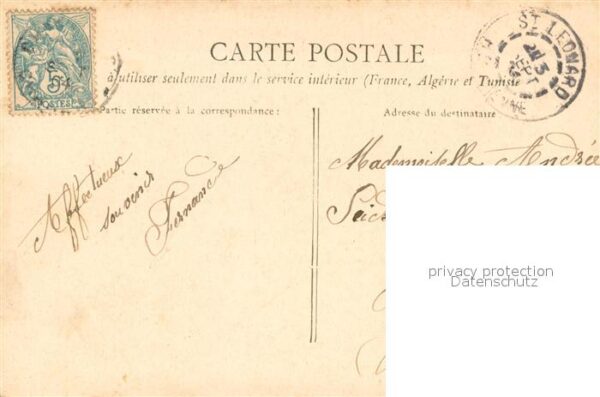 CARTE POSTALE
à utiliser seulement dans le service intérieur (France, Algérie et Tunisie
Partie réservée à la correspondance:
Adresse du destinataire
ST LEONARD
SEPT
5c
POSTES
Affectueux
souvenir
Fernande
Mademoiselle Andrée
privacy protection
Datenschutz